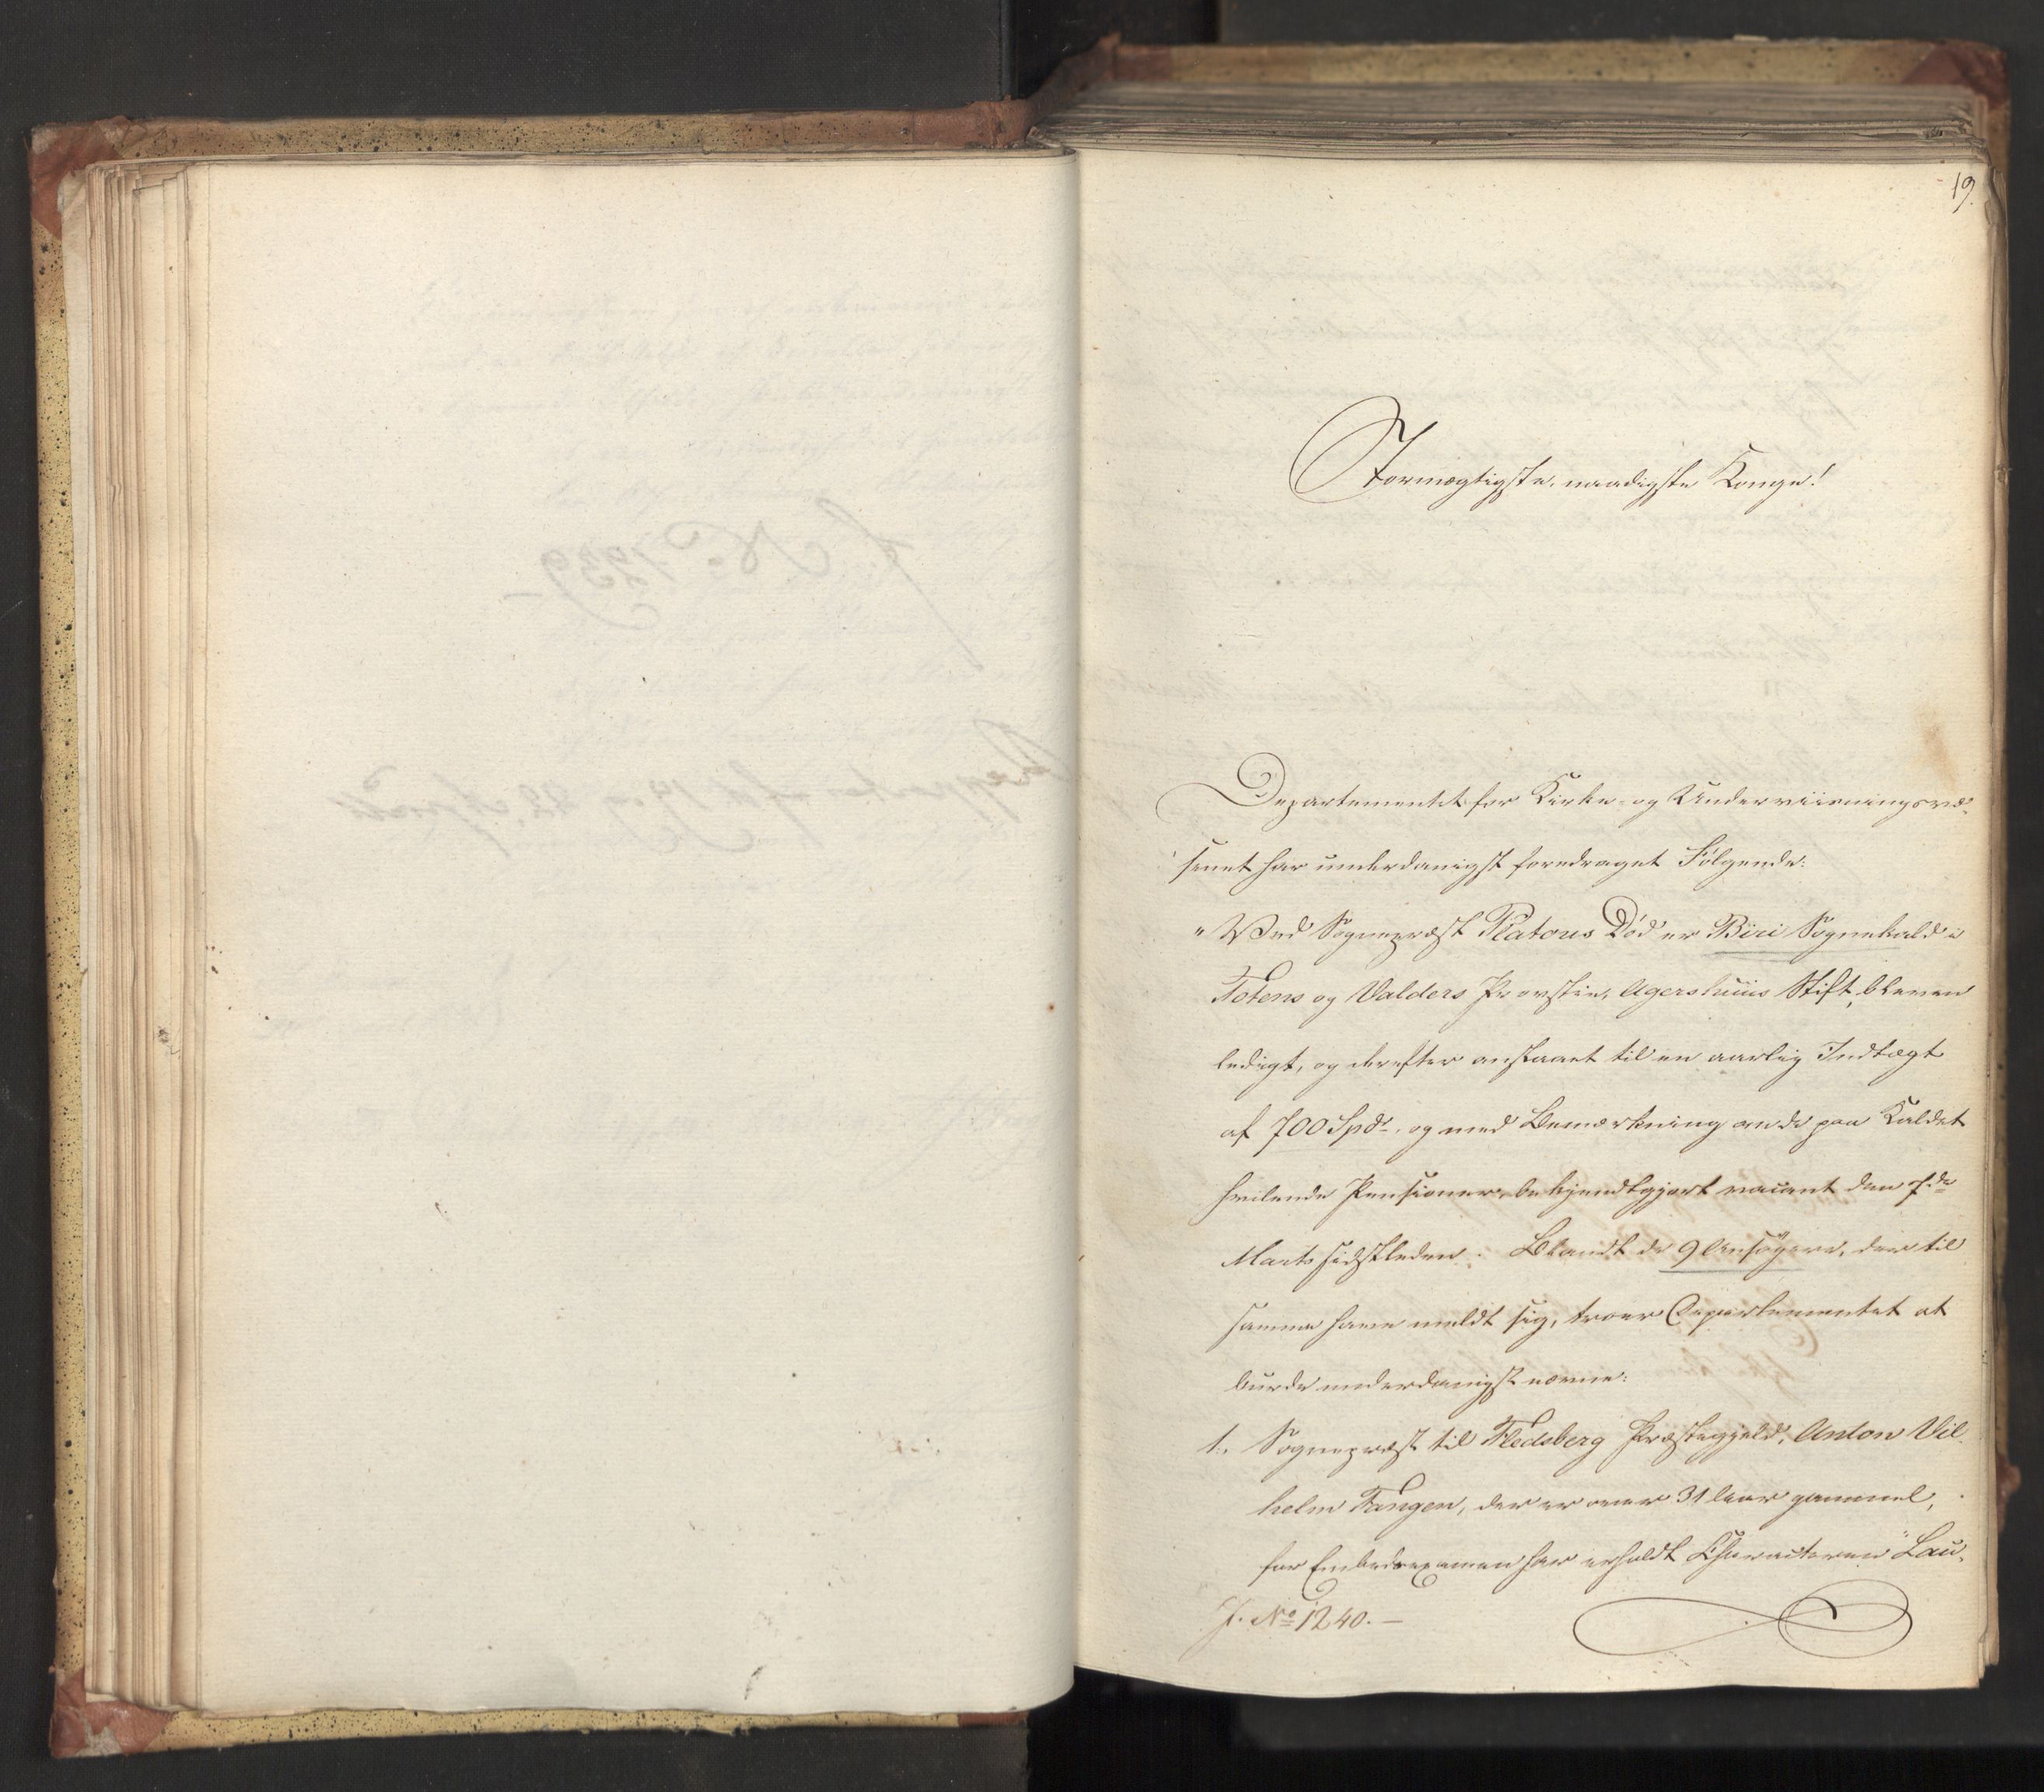 19.
Stormægtigste, naadigste Konge!
Departementet for Kirke- og Underviisningsvæ-
senet har underdanigst foredraget Følgende:
"Ved Sognepræst Platous Død er Biri Sognekald i
Totens og Valders Provstie, Agershuus Stift, bleven
ledigt, og derefter anslaaet til en aarlig Indtægt
af 700 Spd. og med Bemærkning om de paa Kaldet
hvilende Pensioner, bekjendtgjort vacant den 7de
Marts sidstleden. Blandt de 9 Ansøgere, der til
samme have meldt sig, troer Departementet at
burde underdanigst nævne:
1., Sognepræst til Fledsberg Præstegjeld, Anton Vil-
helm Fangen, der er over 31 Aar gammel,
for Embedsexamen har erholdt Characteren "Lau-
J. No 1240. —